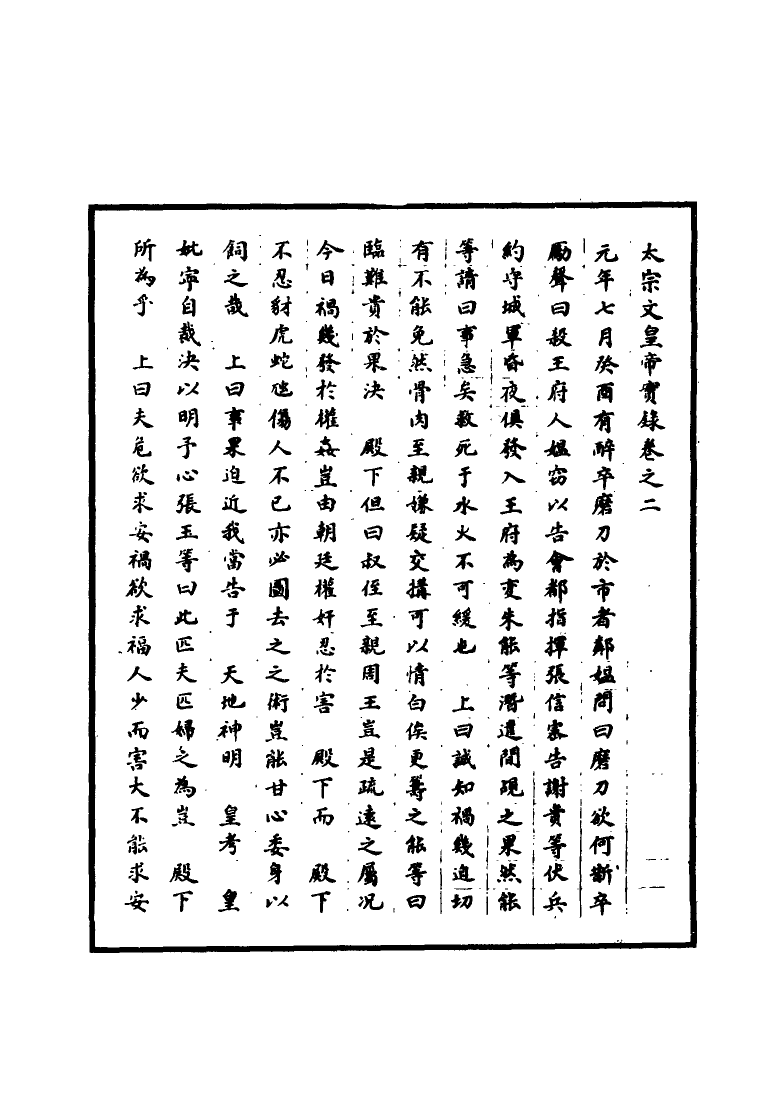 太宗文皇帝實錄卷之二
元年七月癸酉有醉卒磨刀於市者鄰媪問曰磨刀欲何斷卒
勵聲曰殺王府人媪窃以告會都指揮張信密告謝貴等伏兵
約守城軍昏夜俱發入王府為变朱能等潛遣間覘之果然能
等請曰事急矣救死于水火不可緩也　上曰誠知禍幾迫切
有不能免然骨肉至親嫌疑交搆可以情白俟更籌之能等曰
臨難貴於果決　殿下但曰叔侄至親周王豈是疏遠之屬况
今日禍幾發於權姦豈由朝廷權奸忍於害　殿下而　殿下
不忍豺虎蛇虺傷人不已亦必圖去之之術豈能甘心委身以
飼之哉　上曰事果迫近我當告于　天地神明　皇考　皇
妣寧自裁决以明予心張玉等曰此匹夫匹婦之為豈　殿下
所為乎　上曰夫危欲求安禍欲求福人少而害大不能求安